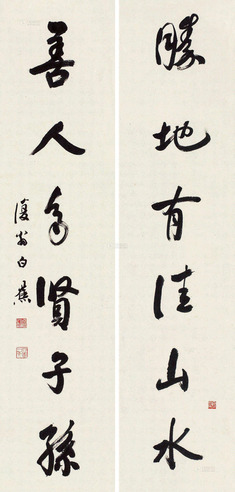 勝地有佳山水
善人多賢子孫
復翁白蕉